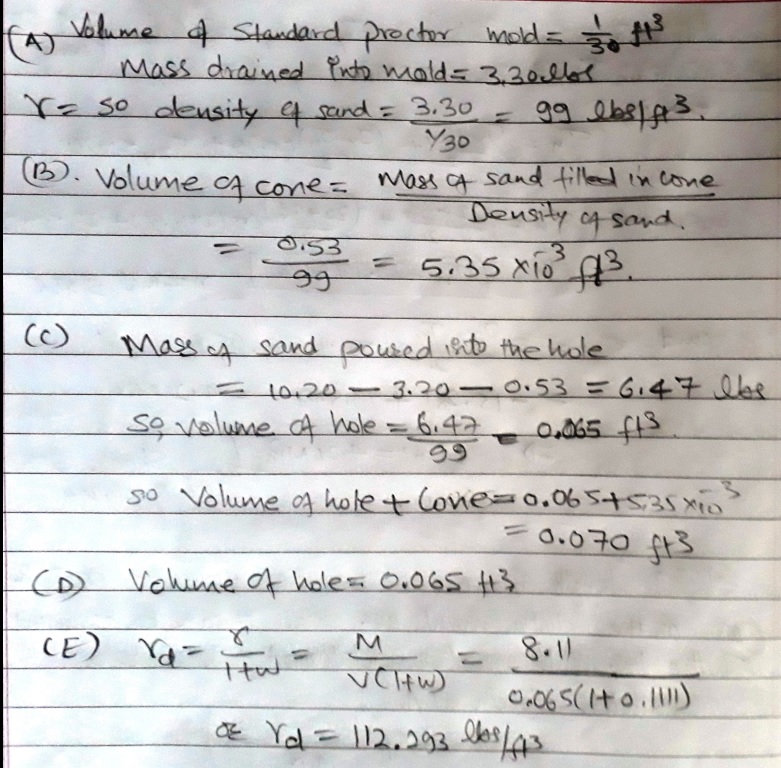 (A) Volume of Standard proctor mold = 1/30 ft³
Mass drained into mold = 3.30 lbs
γ = so density of sand = 3.30 / 1/30 = 99 lbs/ft³.
(B). Volume of cone = Mass of sand filled in cone / Density of sand.
= 0.53 / 99 = 5.35 x 10⁻³ ft³.
(C) Mass of sand poured into the hole
= 10.20 - 3.20 - 0.53 = 6.47 lbs
so volume of hole = 6.47 / 99 = 0.065 ft³.
so Volume of hole + Cone = 0.065 + 5.35 x 10⁻³
= 0.070 ft3
(D) Volume of hole = 0.065 ft3
(E) γd = γ / 1+w = M / V(1+w) = 8.11 / 0.065(1+0.1111)
or γd = 112.293 lbs/ft3